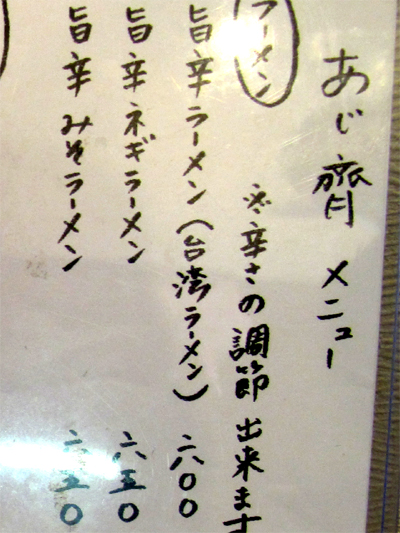 あじ齊 メニュー
ラーメン
※辛さの調節出来ます
旨辛ラーメン(台湾ラーメン) 六〇〇
旨辛ネギラーメン 六五〇
旨辛みそラーメン 六五〇